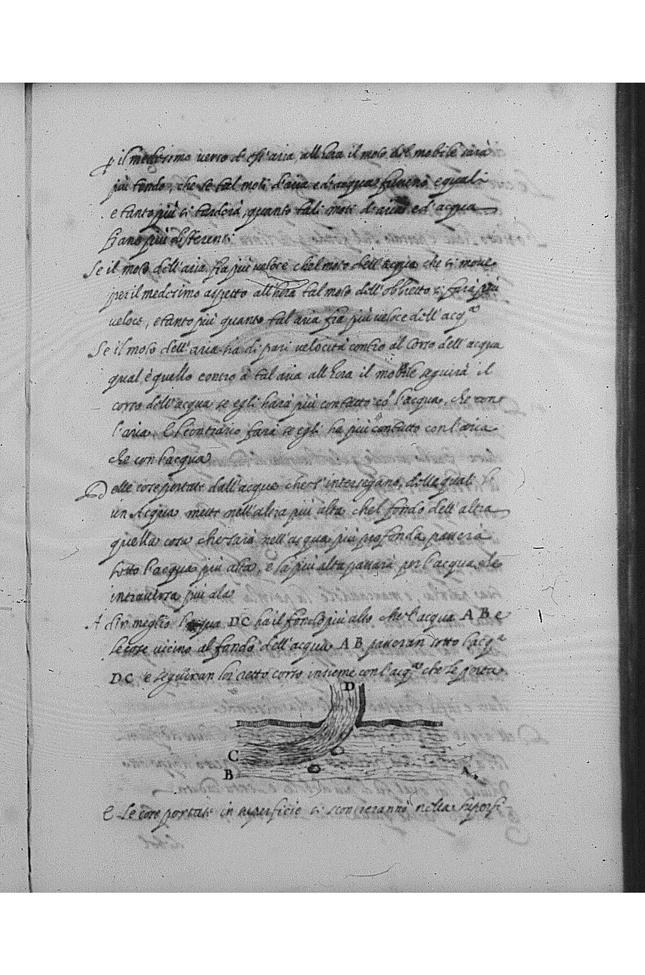 p il medesimo verso di est' aria, all'hora il moto del mobile sarà
più tardo, che se tal moti d'aria ed acqua fussino equali
e tanto più si tarderà, quanto tali moti d'aria ed acqua
siano più differenti.
Se il moto dell'aria fia più veloce chel moto dell'acqua che si move
per il medesimo aspetto all'hora tal moto dell'obbietto si farà più
veloce, e tanto più quanto tal aria fia più veloce dell'acqª
Se il moto dell'aria ha di pari velocità contro al corso dell'acqua
qual è quello contro à tal aria all'hora il mobile seguirà il
corso dell'acqua se egli harà più contatto cō l'acqua, che con
l'aria. E l'contrario farà se egli ha più contatto con l'aria
che con l'acqua
Delle cose portate dall'acque che s'intersegano, delle quali l'
un Acqua mette nell'altra più alta chel fondo dell'altra
quella cosa che sarà nell'acqua più profonda passerà
sotto l'acqua più alta, e la più alta passarà per l'acqua che
intraversa più alta
A dir meglio l'acqua DC ha il fondo più alto che l'acqua AB e
le cose vicino al fondo dell'acqua AB passeran sotto l'acqª
DC e seguiran lor retto corso insieme con l'acqª che le porta
D
C
B
A.
E le cose portate in superficie si sconteranno nella superfi